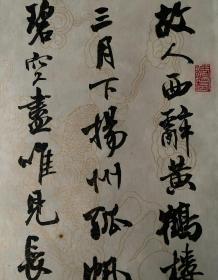 故人西辭黃鶴樓
三月下揚州孤帆
碧空盡唯見長